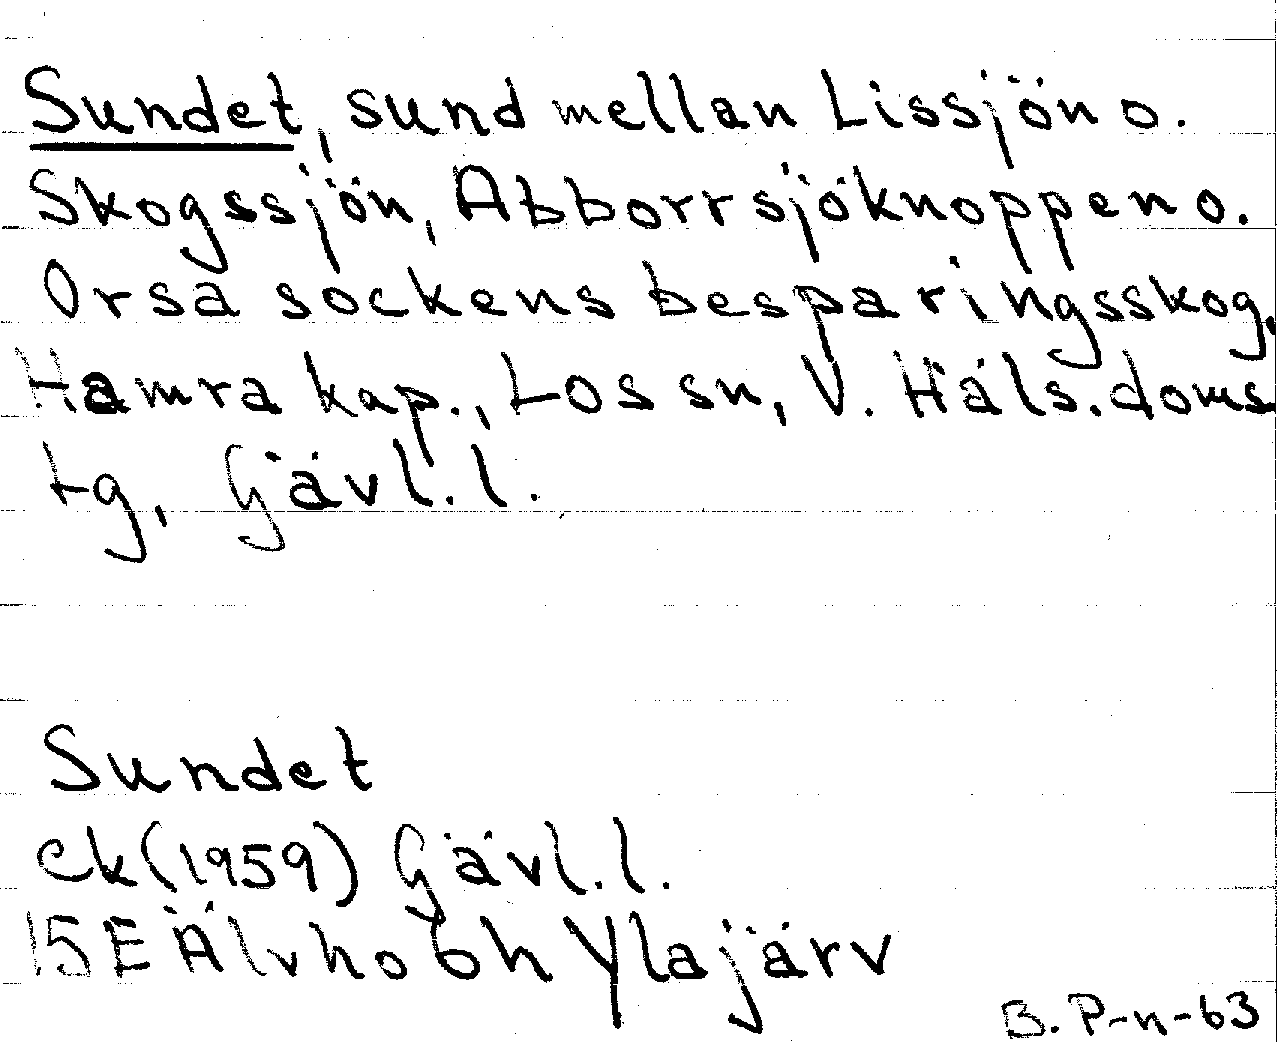 Sundet, sund mellan Lissjön o.
Skogssjön, Abborrsjöknoppen o.
Orsa sockens besparingsskog,
Hamra kap., Los sn, V. Häls. doms
tg, Gävl. l.
Sundet
Ek (1959) Gävl. l.
15E Älvho 6h Ylajärv
B. P-n-63